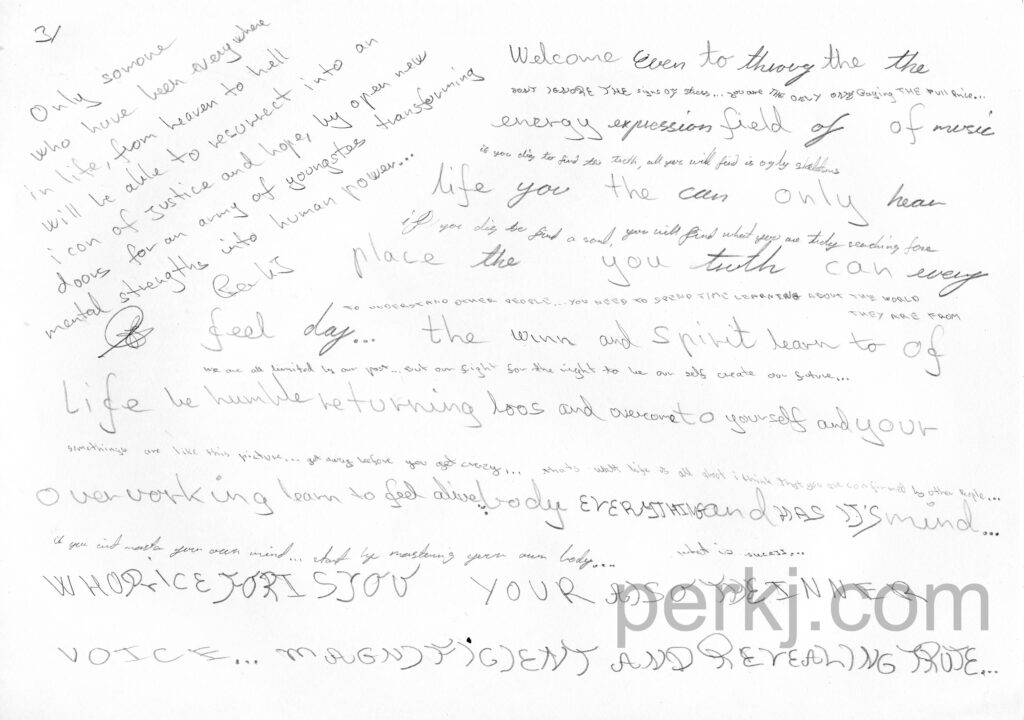 3/
Only somone
who have been everywhere
in life, from heaven to hell
will be able to resurrect into an
icon of justice and hope, by open new
doors for an army of youngstas transforming
mental strengths into human power...
PerkJ
Welcome Even to throug the the
DONT IGNORE THE signs of stress... you are THE ONLY ONE Paying THE Full Price...
energy expression field of of music
if you dig to find the truth, all you will find is ugly skeletons
life you the can only hear
if you dig to find a soul, you will find what you are truly searching fore
place the you truth can every
TO UNDERSTAND OTHER PEOPLE... YOU NEED TO SPEND TIME LEARNING ABOUT THE WORLD
THEY ARE FROM
feel day... the winn and spirit learn to of
we are all limited by our past... but our fight for the right to be our self create our future...
Life be humble returning loos and overcome to yourself and your
somethings are like this picture... get away before you get crazy... thats what life is all about i think that you are confirmed by other people...
overworking learn to feel alive body EVERYTHING and HAS IT'S mind...
if you cint master your own mind... start by mastering your own body.... what is success...
WHO PRICE FOR IS YOU YOUR ALSO THE INNER
VOICE... MAGNIFICIENT AND REVEALING TRUTE...
perkj.com